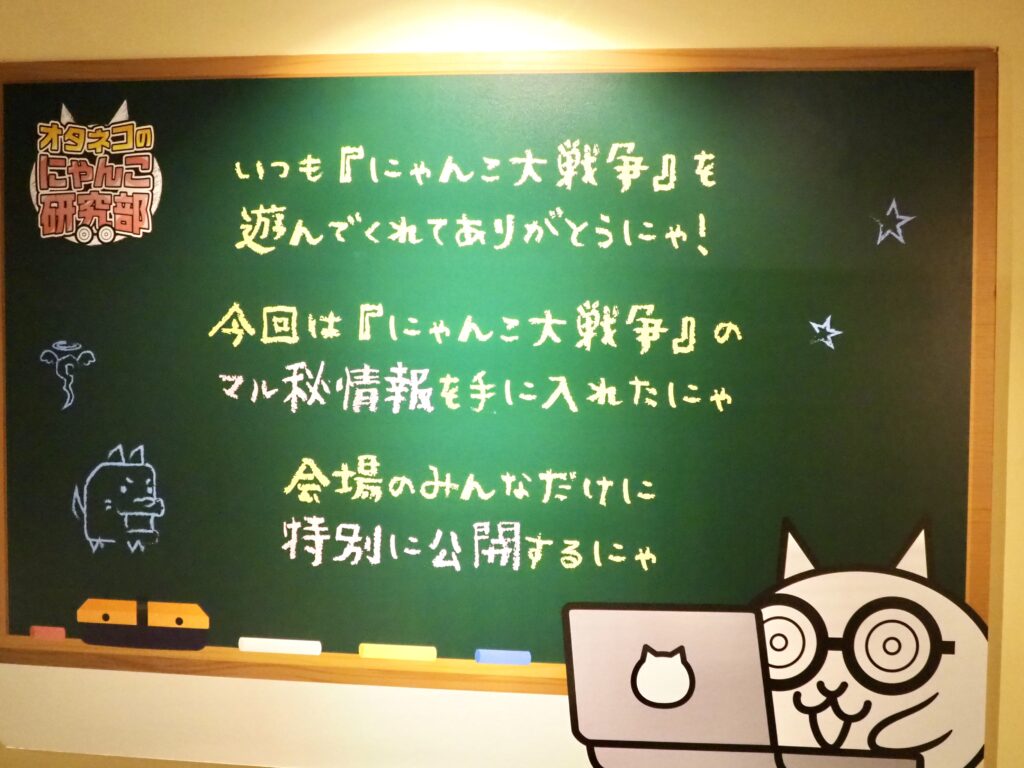 オタネコの
にゃんこ
研究部
いつも『にゃんこ大戦争』を
遊んでくれてありがとうにゃ!
今回は『にゃんこ大戦争』の
マル秘情報を手に入れたにゃ
会場のみんなだけに
特別に公開するにゃ